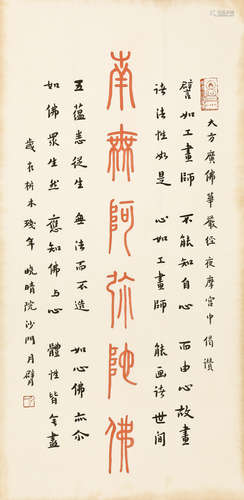 大方廣佛華嚴經夜摩宮中偈讚
譬如工畫師 不能知自心 而由心故畫
諸法性如是 心如工畫師 能畫諸世間
南無阿弥陀佛
五蘊悉從生 無法而不造 如心佛亦尒
如佛眾生然 應知佛与心 體性皆無盡
歲在析木殘年晚晴院沙門月臂